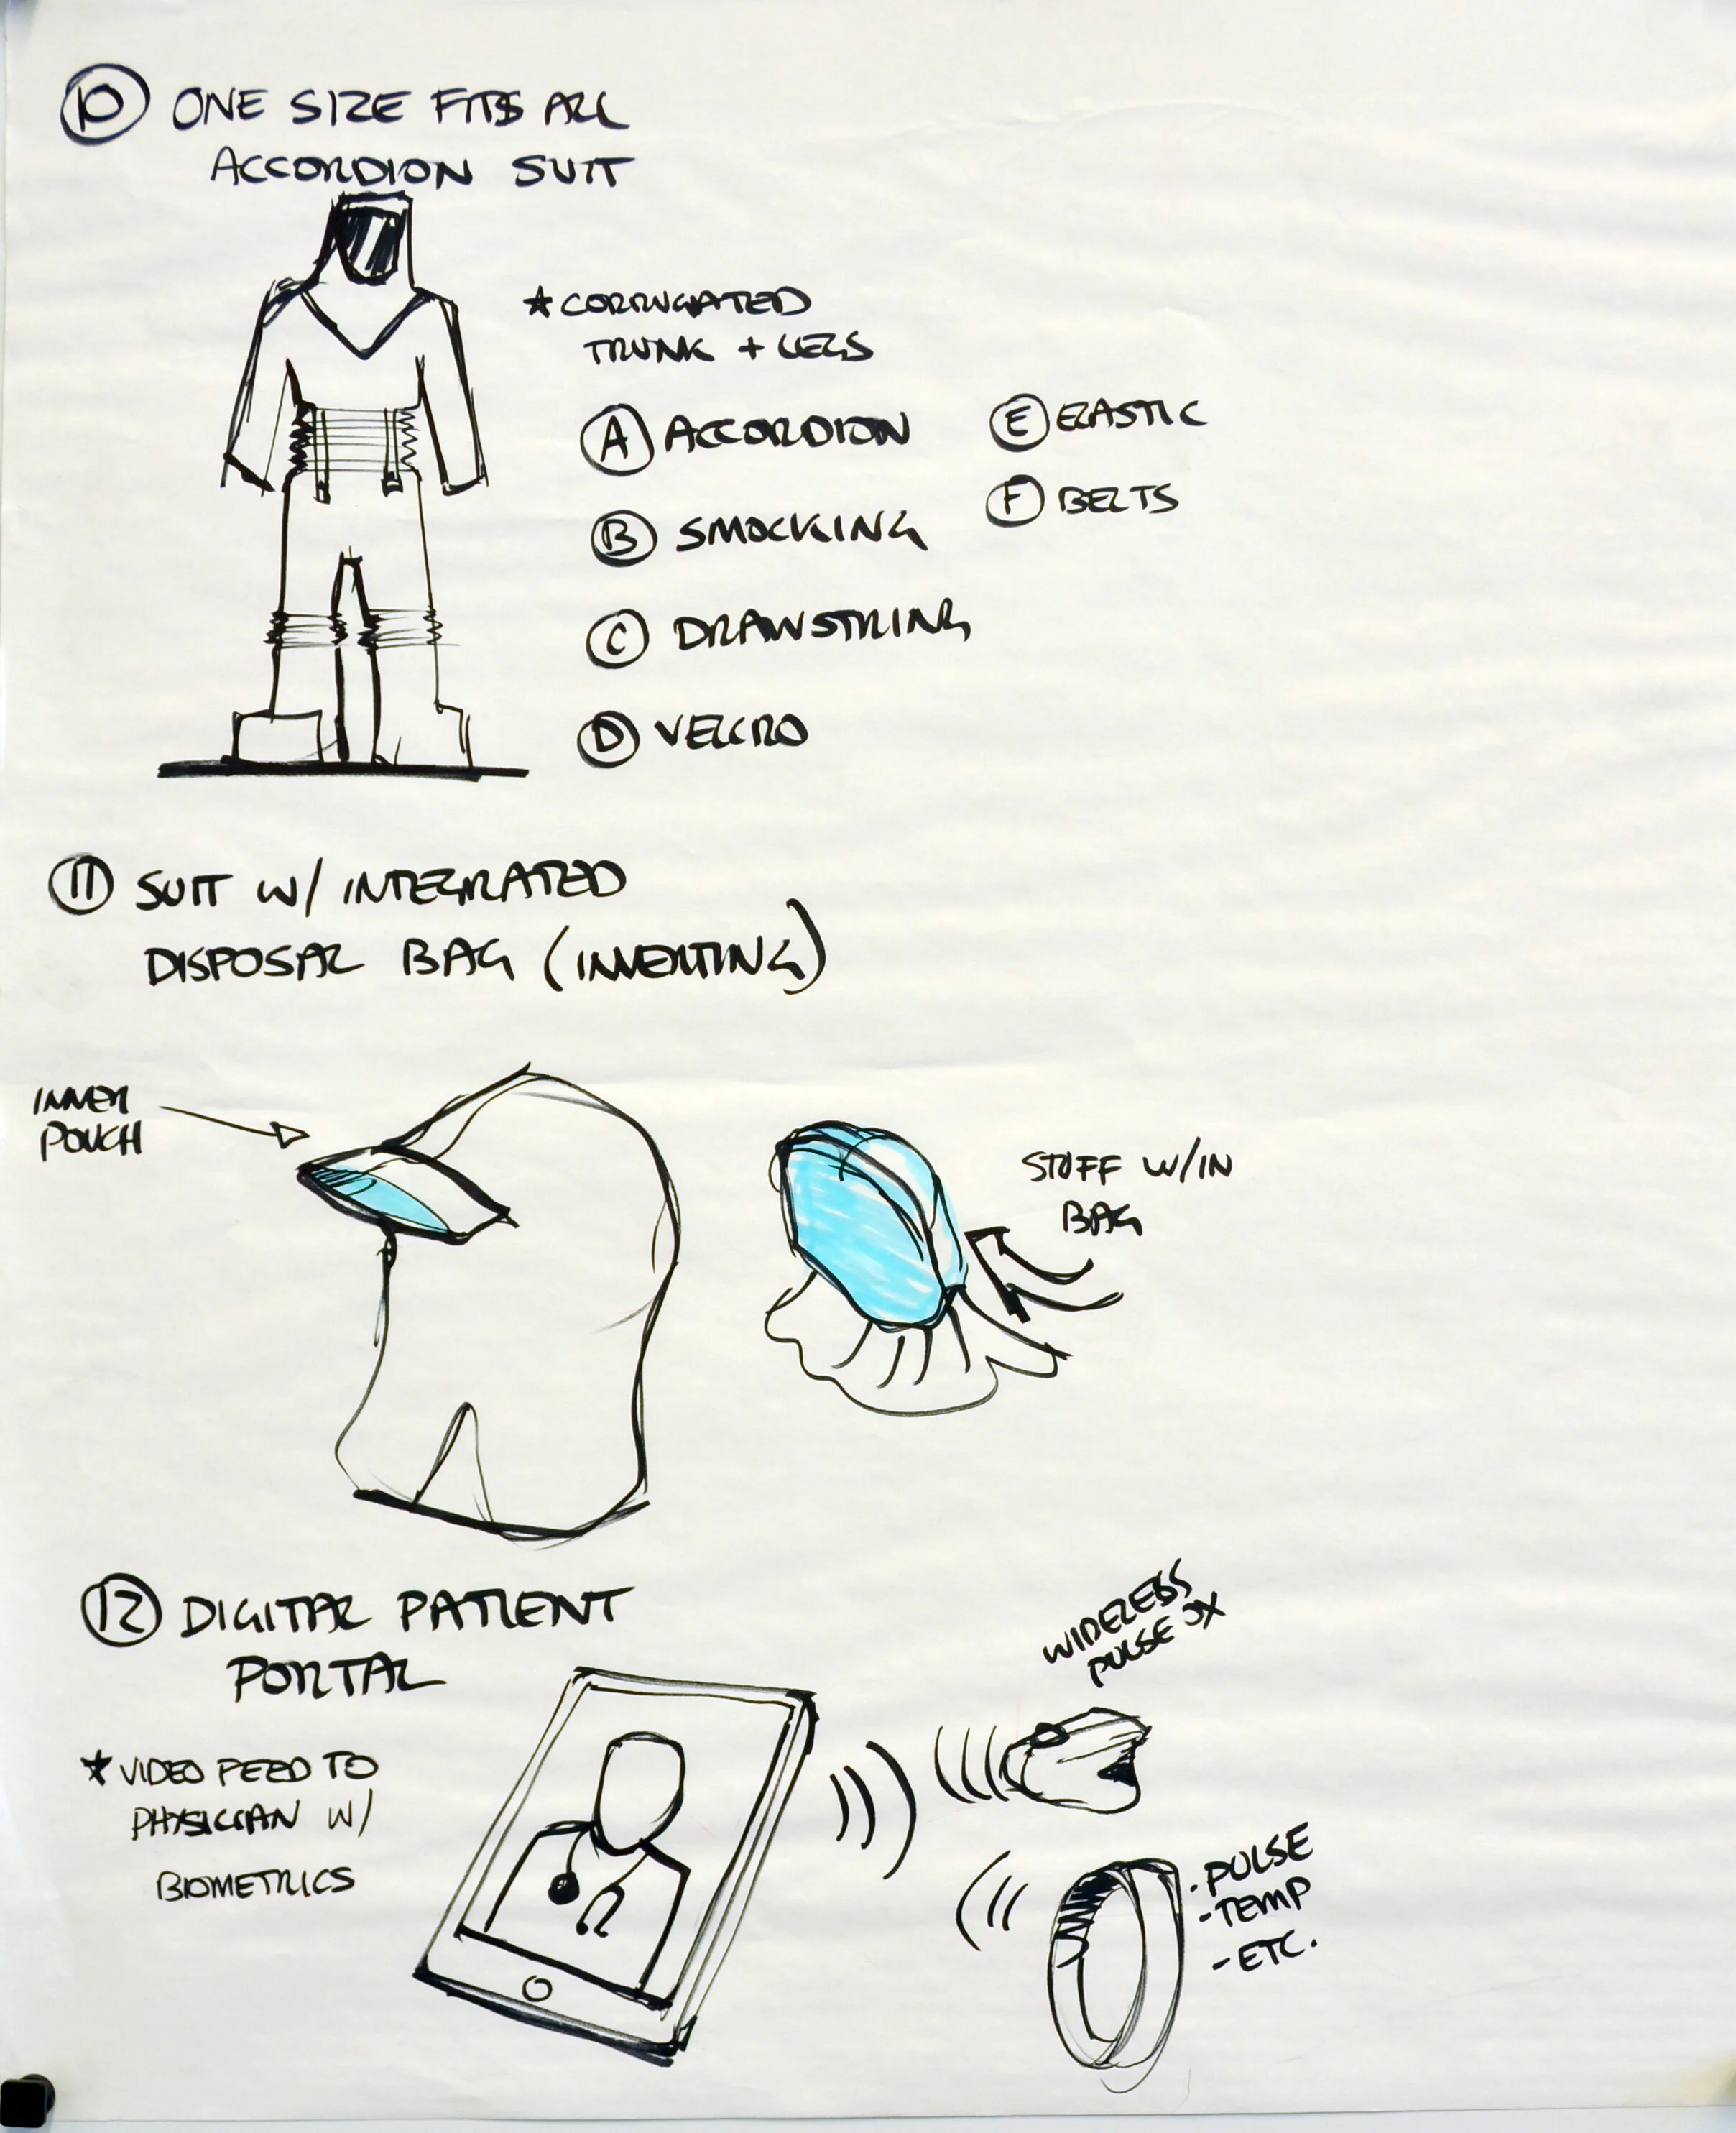 10 ONE SIZE FITS ALL
ACCORDION SUIT
★ CORRUGATED
TRUNK + LEGS
A ACCORDION
B SMOCKING
C DRAWSTRING
D VELCRO
E ELASTIC
F BELTS
11 SUIT W/ INTEGRATED
DISPOSAL BAG (INVERTING)
INNER
POUCH
STUFF W/IN
BAG
12 DIGITAL PATIENT
PORTAL
★ VIDEO FEED TO
PHYSICIAN W/
BIOMETRICS
WIRELESS
PULSE OX
· PULSE
- TEMP
- ETC.